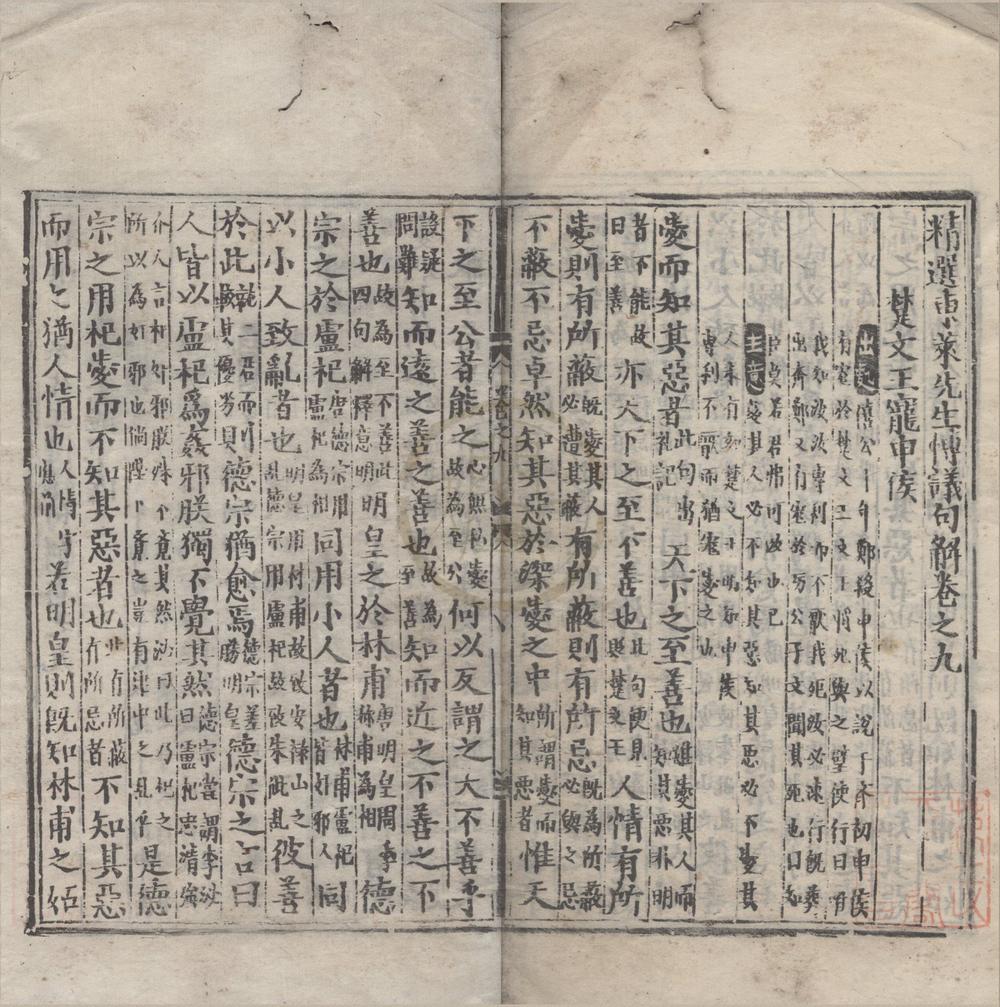 精選東萊先生博議句解卷之九
楚文王寵申侯
出處 僖公七年鄭殺申侯以說于齊初申侯
有寵於楚文王文王將死與之璧使行曰唯
我知汝汝專利而不厭我死汝必速行既葬
出奔鄭又有寵於厲公子文聞其死也曰知
臣莫若君弗可改也已
主意 愛其人必不知其惡知其惡必不愛其
人未有如楚文王明知申侯
專利不厭而猶寵愛之也
愛而知其惡者此句出禮記天下之至善也雖愛其人而知其惡非明
者不能故曰至善亦天下之至不善也此句便見楚文王人情有所
愛則有所蔽既愛其人必遭其蔽有所蔽則有所忌既為所蔽必與之忌
不蔽不忌卓然知其惡於深愛之中所謂愛而知其惡者惟天
下之至公者能之心無私愛故為至公何以反謂之大不善乎
設疑問難知而遠之善之善也故為至善知而近之不善之不
善也故為至不善此四句解釋意明明皇之於林甫唐明皇用李林甫為相德
宗之於盧杞唐德宗用盧杞為相同用小人者也林甫盧杞皆奸邪人同
以小人致亂者也明皇用林甫故致安祿山之亂德宗用盧杞故致朱泚亂彼善
於此就二君而論其優劣則德宗猶愈焉德宗差勝明皇德宗之言曰
人皆以盧杞為姦邪朕獨不覺其然德宗嘗謂李泌曰盧杞忠清強
介人言杞奸邪朕殊不覺其然泌曰此乃杞之
所以為奸邪也倘陛下覺之豈有建中之亂乎是德
宗之用杞愛而不知其惡者也此有所蔽有所忌者不知其惡
而用之猶人情也人情若明皇則既知林甫之妬